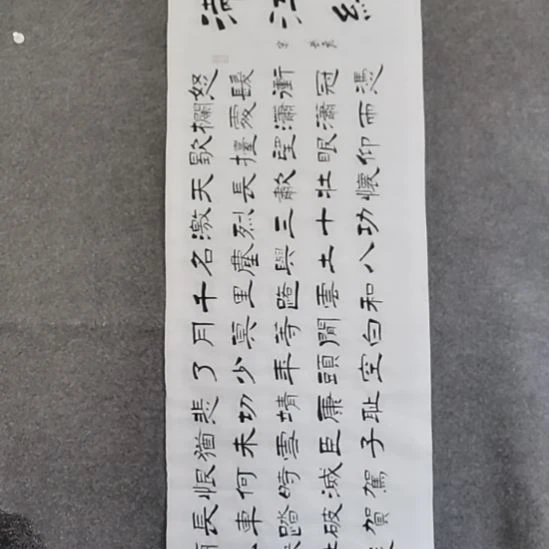 滿江紅
怒髮衝冠憑
欄處瀟瀟雨
歇擡望眼仰
天長嘯壯懷
激烈三十功
名塵與土八
千里路雲和
月莫等閒白
了少年頭空
悲切靖康恥
猶未雪臣子
恨何時滅駕
長車踏破賀